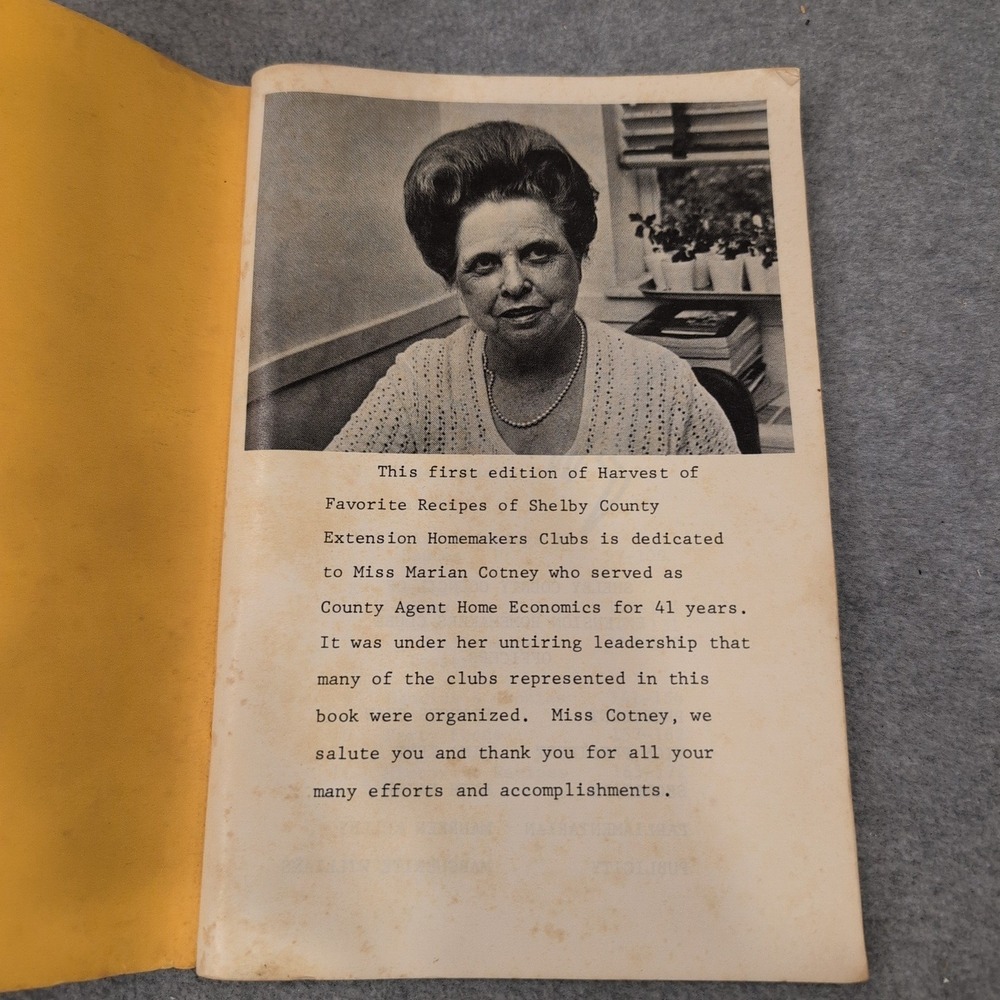 This first edition of Harvest of
Favorite Recipes of Shelby County
Extension Homemakers Clubs is dedicated
to Miss Marian Cotney who served as
County Agent Home Economics for 41 years.
It was under her untiring leadership that
many of the clubs represented in this
book were organized. Miss Cotney, we
salute you and thank you for all your
many efforts and accomplishments.
PARLIAMENTARIAN
PUBLICITY